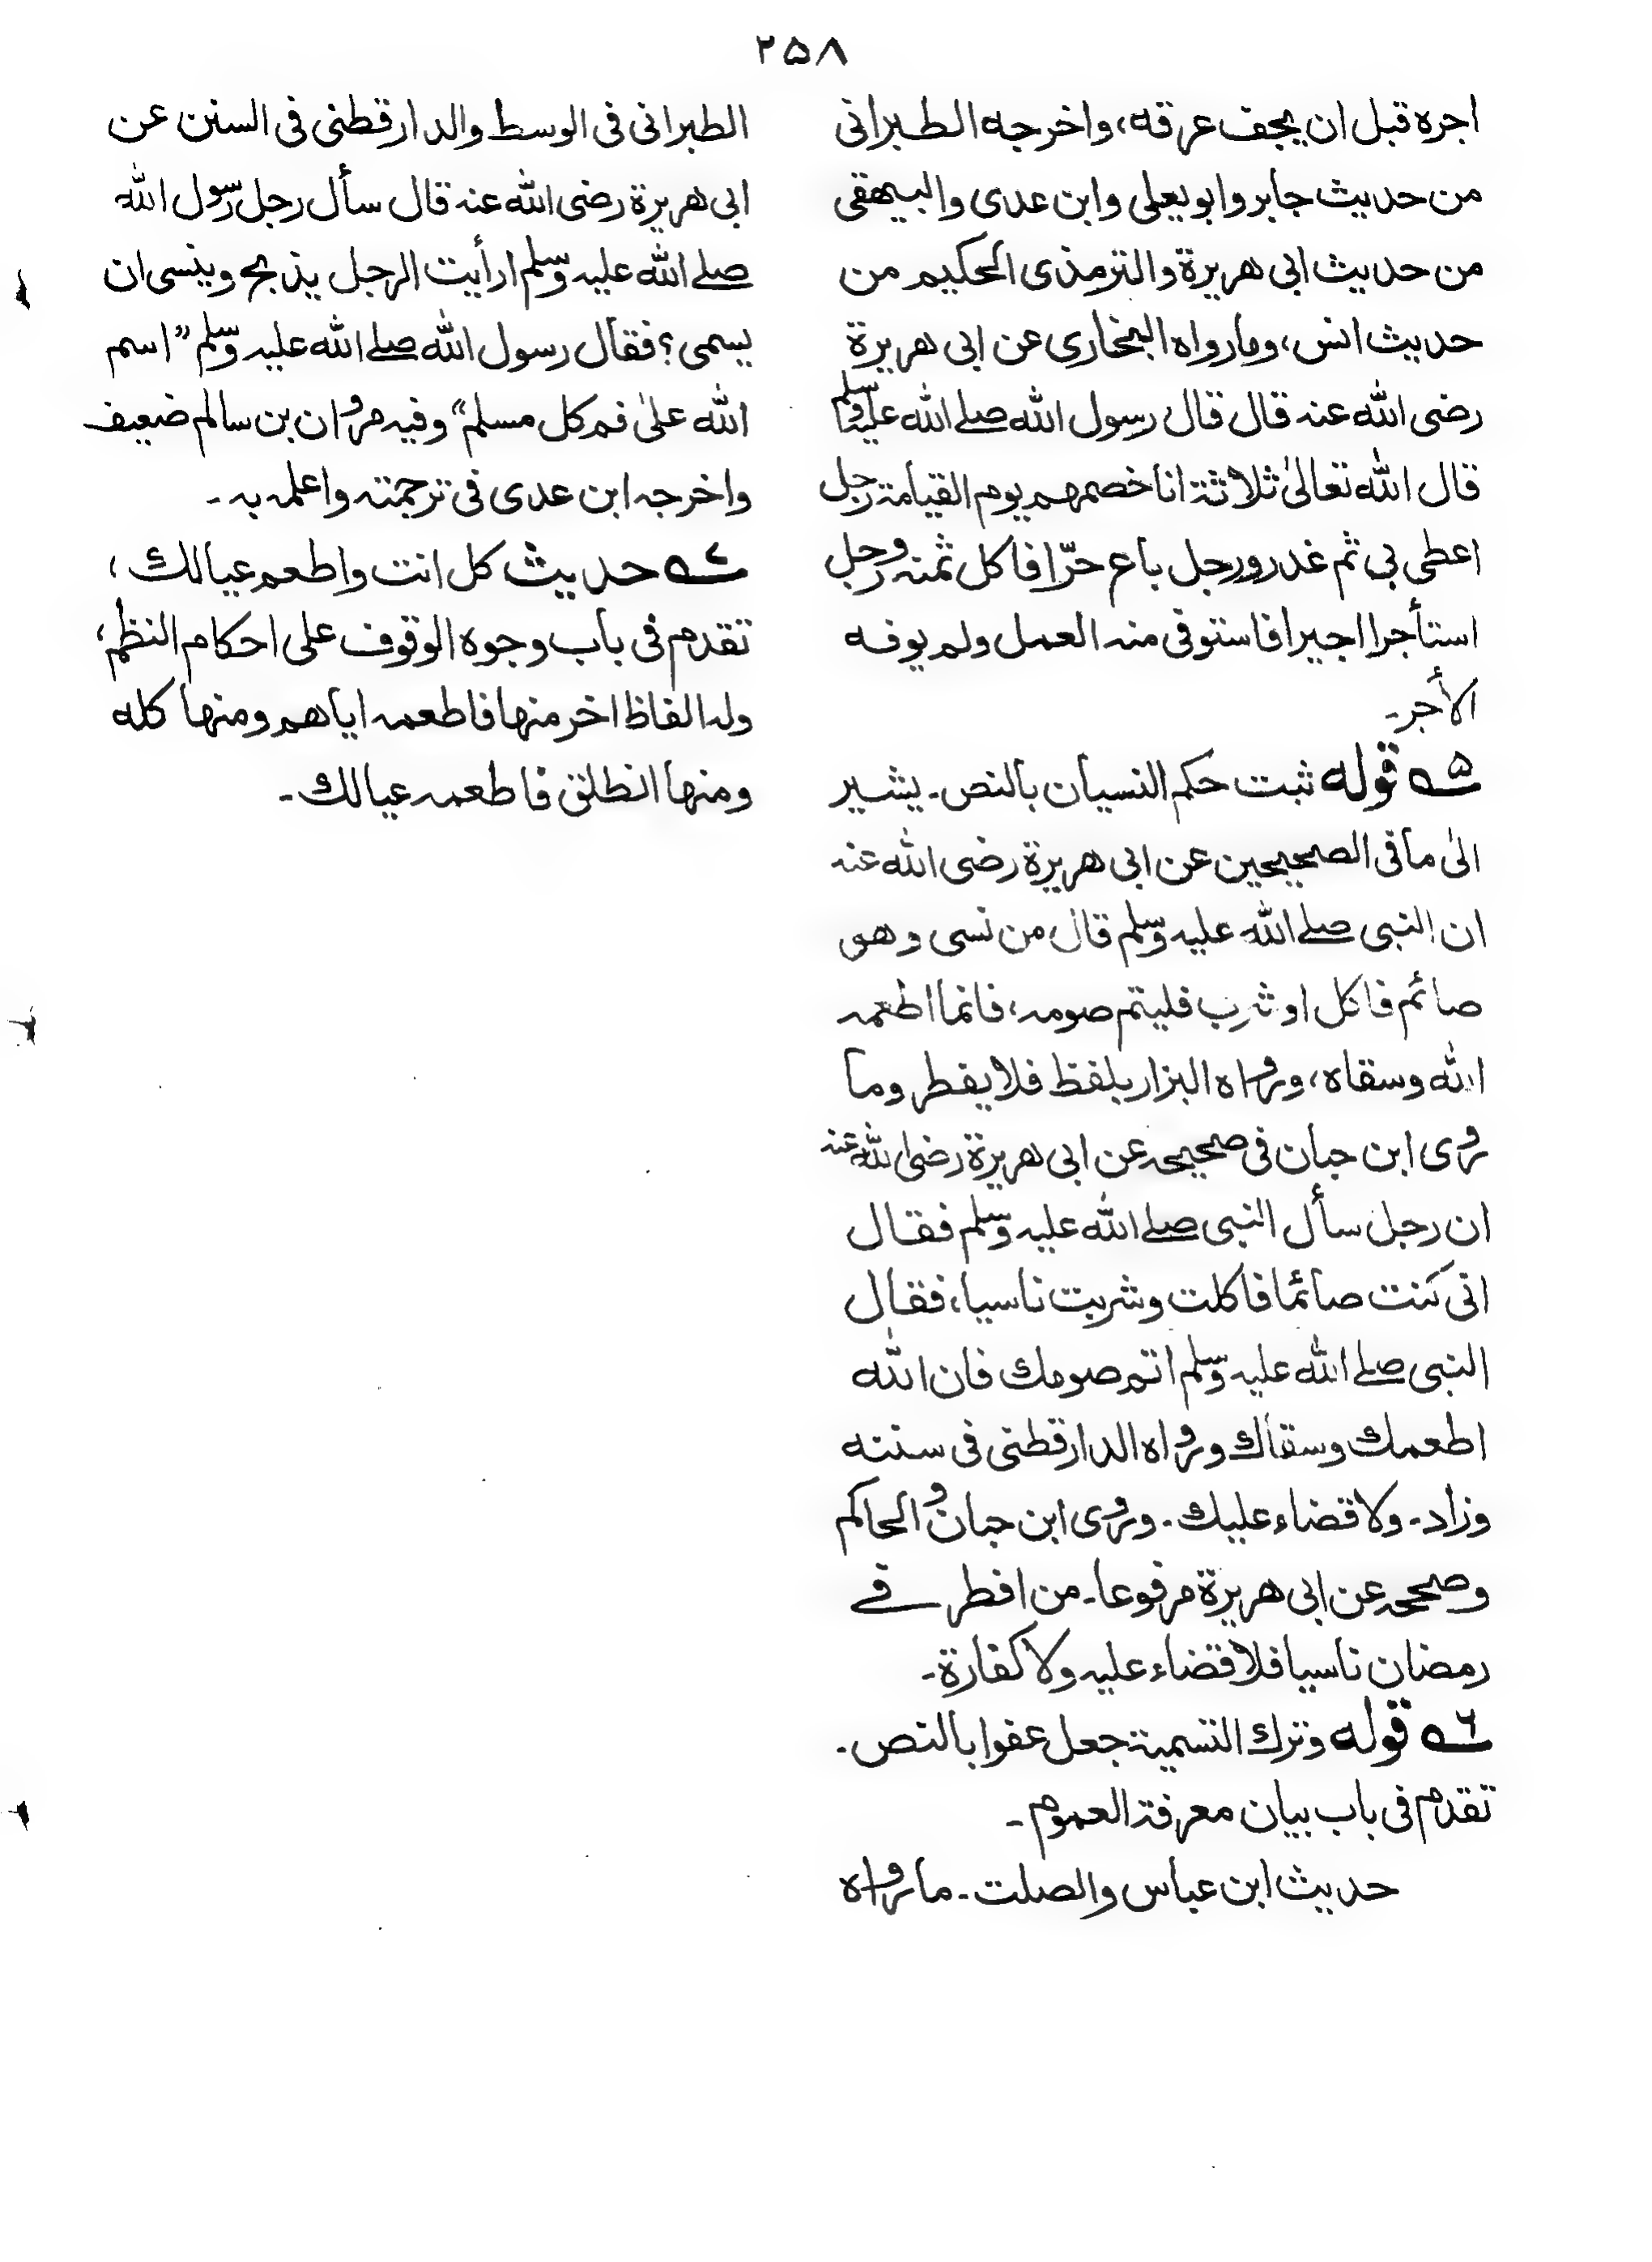 ۲۵۸
اجره قبل ان يجف عرقه، واخرجه الطبرانی
من حديث جابر وابو يعلی وابن عدی والبيهقی
من حديث ابی هريرة والترمذی الحکيم من
حديث انس، وما رواه البخاری عن ابی هريرة
رضی الله عنه قال قال رسول الله صلے الله عليه وسلم
قال الله تعالیٰ ثلاثة انا خصمهم يوم القيامة رجل
اعطی بی ثم غدر ورجل باع حرّا فاکل ثمنه ورجل
استأجر اجيرا فاستوفی منه العمل ولم يوفه
الأجر۔
۵ قوله ثبت حکم النسيان بالنص۔ يشير
الیٰ ما فی الصحيحين عن ابی هريرة رضی الله عنه
ان النبی صلے الله عليه وسلم قال من نسی وهو
صائم فاکل او شرب فليتم صومه، فانما اطعمه
الله وسقاه، ورواه البزار بلفظ فلا يفطر وما
روی ابن حبان فی صحيحه عن ابی هريرة رضی الله عنه
ان رجل سأل النبی صلے الله عليه وسلم فقال
انی کنت صائما فاکلت وشربت ناسيا، فقال
النبی صلے الله عليه وسلم اتم صومك فان الله
اطعمك وسقاك ورواه الدارقطنی فی سننه
وزاد۔ ولا قضاء عليك۔ وروی ابن حبان والحاکم
وصححه عن ابی هريرة مرفوعا۔ من افطر فے
رمضان ناسيا فلا قضاء عليه ولا کفارة۔
۶ قوله وترك التسمية جعل عفوا بالنص۔
تقدم فی باب بيان معرفة العموم۔
حديث ابن عباس والصلت۔ ما رواه
الطبرانی فی الوسط والدارقطنی فی السنن عن
ابی هريرة رضی الله عنه قال سأل رجل رسول الله
صلے الله عليه وسلم ارأيت الرجل يذبح وينسی ان
يسمی؟ فقال رسول الله صلے الله عليه وسلم ”اسم
الله علیٰ فم کل مسلم“ وفيه مروان بن سالم ضعيف
واخرجه ابن عدی فی ترجمته واعلمه به۔
۷ حديث کل انت واطعم عيالك،
تقدم فی باب وجوه الوقوف علی احکام النظم،
وله الفاظ اخر منها فاطعمه اياهم ومنها کله
ومنها انطلق فاطعمه عيالك۔